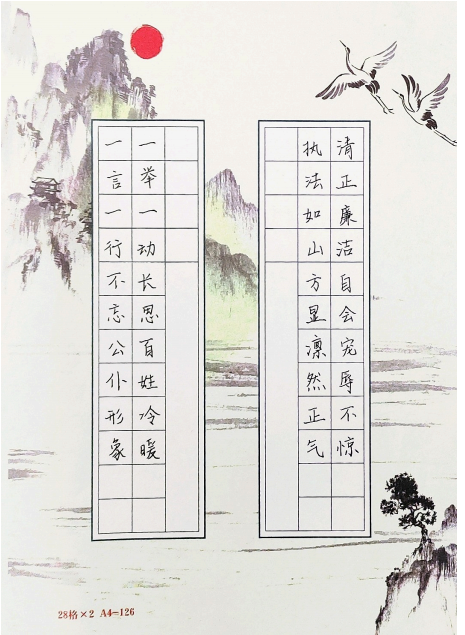 清正廉洁自会宠辱不惊
执法如山方显凛然正气
一举一动长思百姓冷暖
一言一行不忘公仆形象
28格×2 A4=126